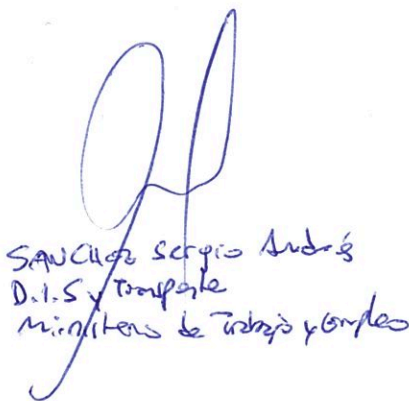 SANCHEZ Sergio Andrés
D.I.S y Transporte
Ministerio de Trabajo y Empleo